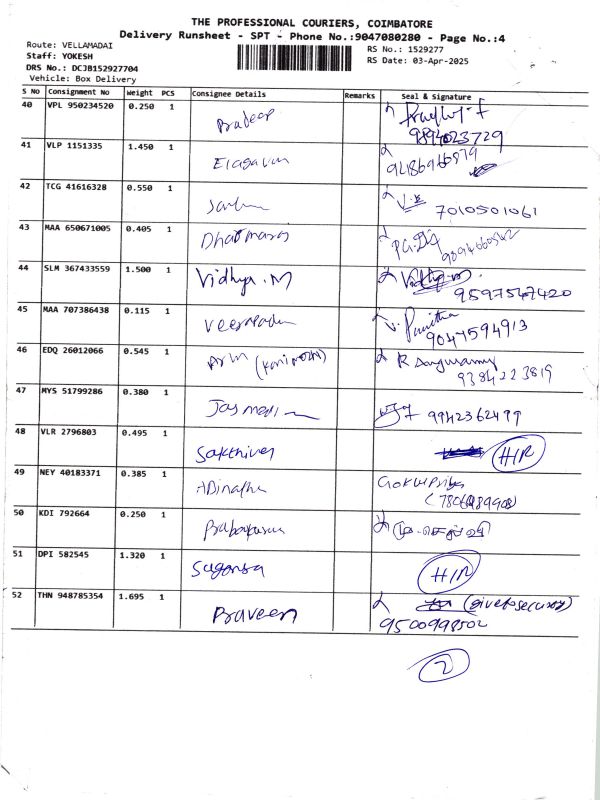 THE PROFESSIONAL COURIERS, COIMBATORE
Delivery Runsheet - SPT - Phone No.:9047080280 - Page No.:4
Route: VELLAMADAI
Staff: YOKESH
DRS No.: DCJB152927704
Vehicle: Box Delivery
RS No.: 1529277
RS Date: 03-Apr-2025
S No Consignment No Weight PCS Consignee Details Remarks Seal & Signature
40 VPL 950234520 0.250 1 Pradeep
41 VLP 1151335 1.450 1
42 TCG 41616328 0.550 1 7010501061
43 MAA 650671005 0.405 1
44 SLM 367433559 1.500 1 Vidhya.M 9597567420
45 MAA 707386438 0.115 1 V. Panitha 9047594913
46 EDQ 26012066 0.545 1 9384223819
47 MYS 51799286 0.380 1 9942362499
48 VLR 2796803 0.495 1 Sakthivel HIR
49 NEY 40183371 0.385 1
50 KDI 792664 0.250 1
51 DPI 582545 1.320 1 HIR
52 THN 948785354 1.695 1 Praveen (give to security)
9500998502
2